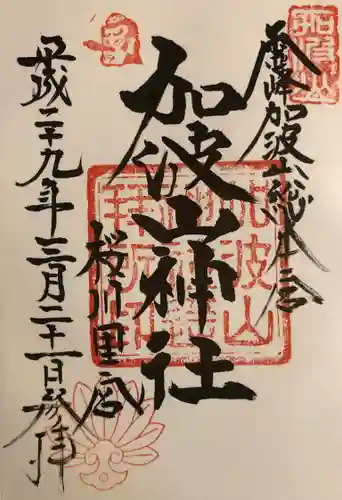 霊峰加波山総本宮
加波山神社
桜川里宮
平成二十九年三月二十一日登拝
加波山